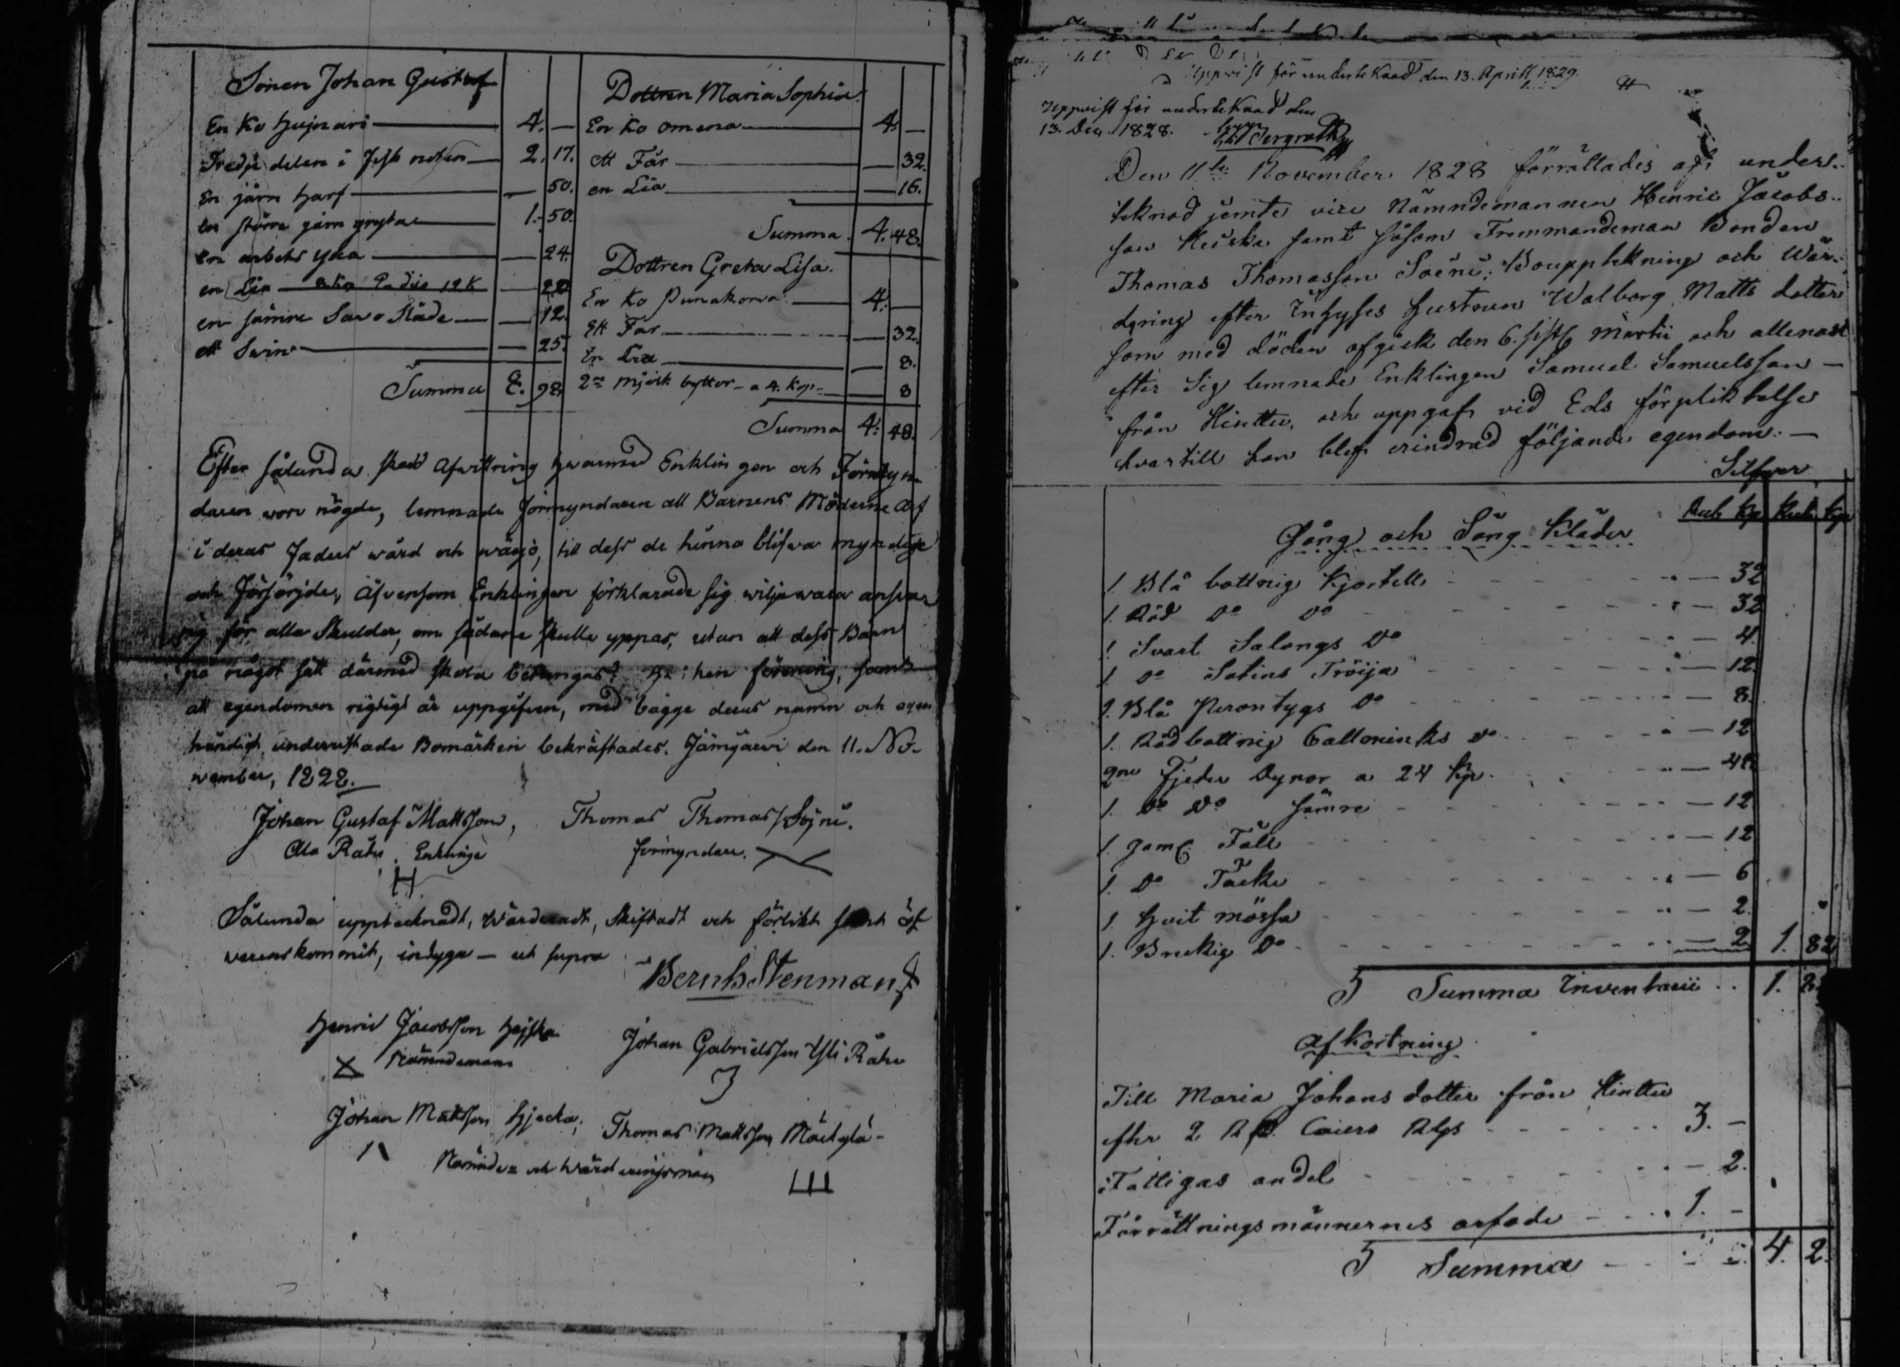 Sonen Johan Gustaf
En Ko Hujnari 4. —
Tredje delen i Fisk noten 2. 17.
En järn harf — 50.
en större järn gryta 1. 50.
en arbets yxa — 24.
en Lia — 20
en sämre Släde — 12.
ett Svin — 25.
Summa 8. 98.
Dottren Maria Sophia.
En Ko omena 4. —
ett Får — 32.
en Lia — 16.
Summa 4. 48.
Dottren Greta Lisa.
En Ko Punakorva 4. —
Ett Får — 32.
En Lia — 8.
2ne Mjölk byttor a 4. kop. — 8
Summa 4. 48.
Efter sålunda skedd Afvittring hvarmed Enklingen och Förmyn-
daren voro nögde, lemnade förmyndaren all Barnens Möderne Arf
i deras Faders wård och , till dess de hinna blifwa myndige
och försörjde, Äfvensom Enklingen förklarade sig wilja wara answar
sig för alla Skulder, om sådane skulle yppas, utan att dess Barn
på något sätt därmed skola förening, samt
att egendomen rigtigt är uppgifven, med bägge deras namn och egen
händigt underritade Bomärken bekräftades. Jämijärvi den 11. No-
vember, 1828.
Johan Gustaf Mattsson, Thomas Thomass. Söyni.
Ala Rahu. Enkling förmyndare.
H
Sålunda upptecknadt, Wärderadt, Skiftadt och förlikt samt öf
verenskommit, intyga — ut supra
Bernh Stenman
Henric Jacobsson Hejska Johan Gabrielsson Yli Rahu
Nämndeman
Johan Mattsson Hjecka, Thomas Mattsson Mäckylä-
Nämnde- och Wärderingsmän
Uppvist för underteknad den 13. April 1829.
Uppvist för underteknad den
13. Dec. 1828.
Den 11te November 1828 förrättades af under-
teknad jemte vice Nämndemannen Henric Jacobs-
son Heiska samt såsom Fremmandeman Bonden
Thomas Thomasson Soini, Bouppteckning och Wär-
dering efter Inhyses Hustrun Walborg Matts dotter
som med döden afgick den 6. sistl. Martii och allenast
efter sig lemnade Enklingen Samuel Samuelsson —
från Kinttu, och uppgaf vid Eds förpliktelse
hvartill han blef erindrad följande egendom. —
Silfver
Gång och Säng Kläder Rub Kp Rub Kp
1. Blå bottnig Kjortell — 32
1. Röd Do Do — 32
1. Svart Salongs Do — 4
1 Do Satins Tröija — 12.
1. Blå Do — 8.
1. Röd bottnig Do — 12
2ne Fjeder Dynor a 24 Kp. — 48
1. Do Do sämre — 12
1. gaml Fäll — 12
1. Do Täcke — 6
1 Hvit mössa — 2.
1. Do — 2 1. 82
Summa Inventarii 1. 82
Afkortning
Till Maria Johans dotter från Kinttu
efter 2 3. —
Fattigas andel — 2.
Förrättningsmännernes arfode 1. —
Summa 4. 2.